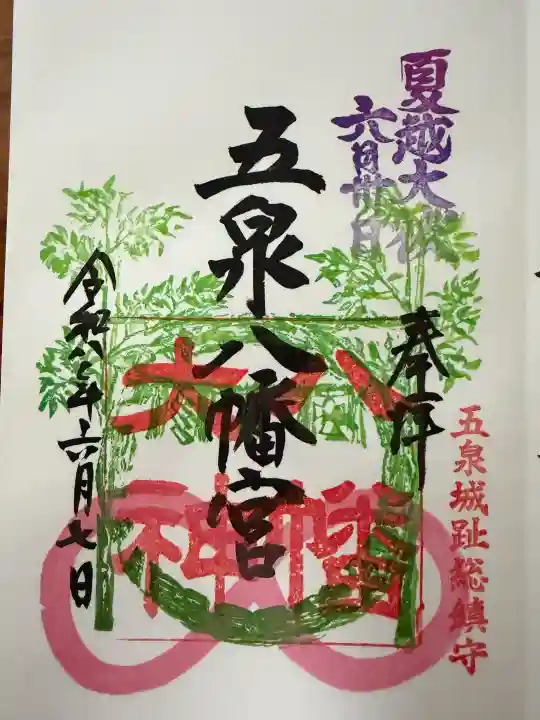 夏越大祓
六月卅日
奉拝
五泉城趾総鎮守
五泉八幡宮
八幡大神
令和八年六月七日